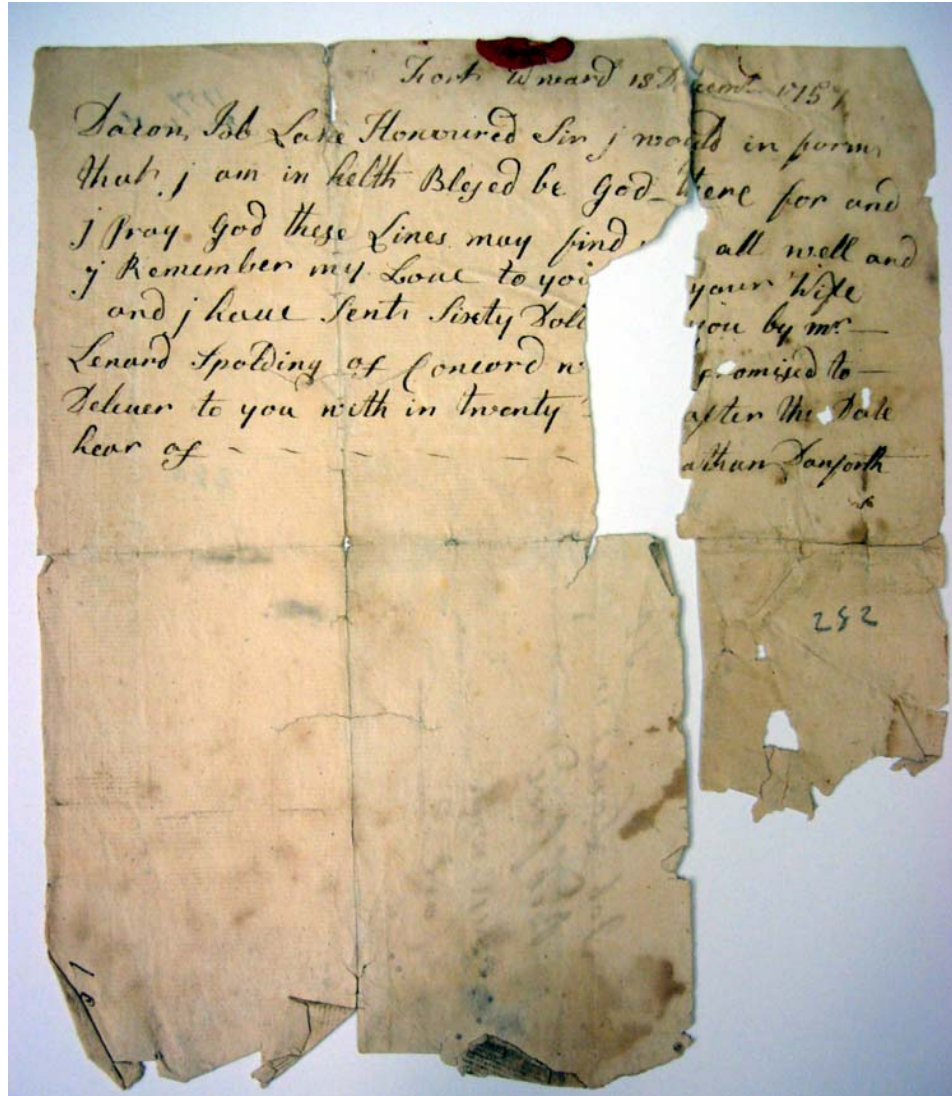 Fort Edward 18 Decemb 1757
Dacon Job Lane Honoured Sir j would in form
that j am in helth Blesed be God there for and
j Pray God these Lines may find all well and
j Remember my Love to you your Wife
and j have Sent Sixty Doll you by mr
Lenard Spolding of Concord promised to
Deliver to you with in twenty after the Date
hear of athan Danforth
282